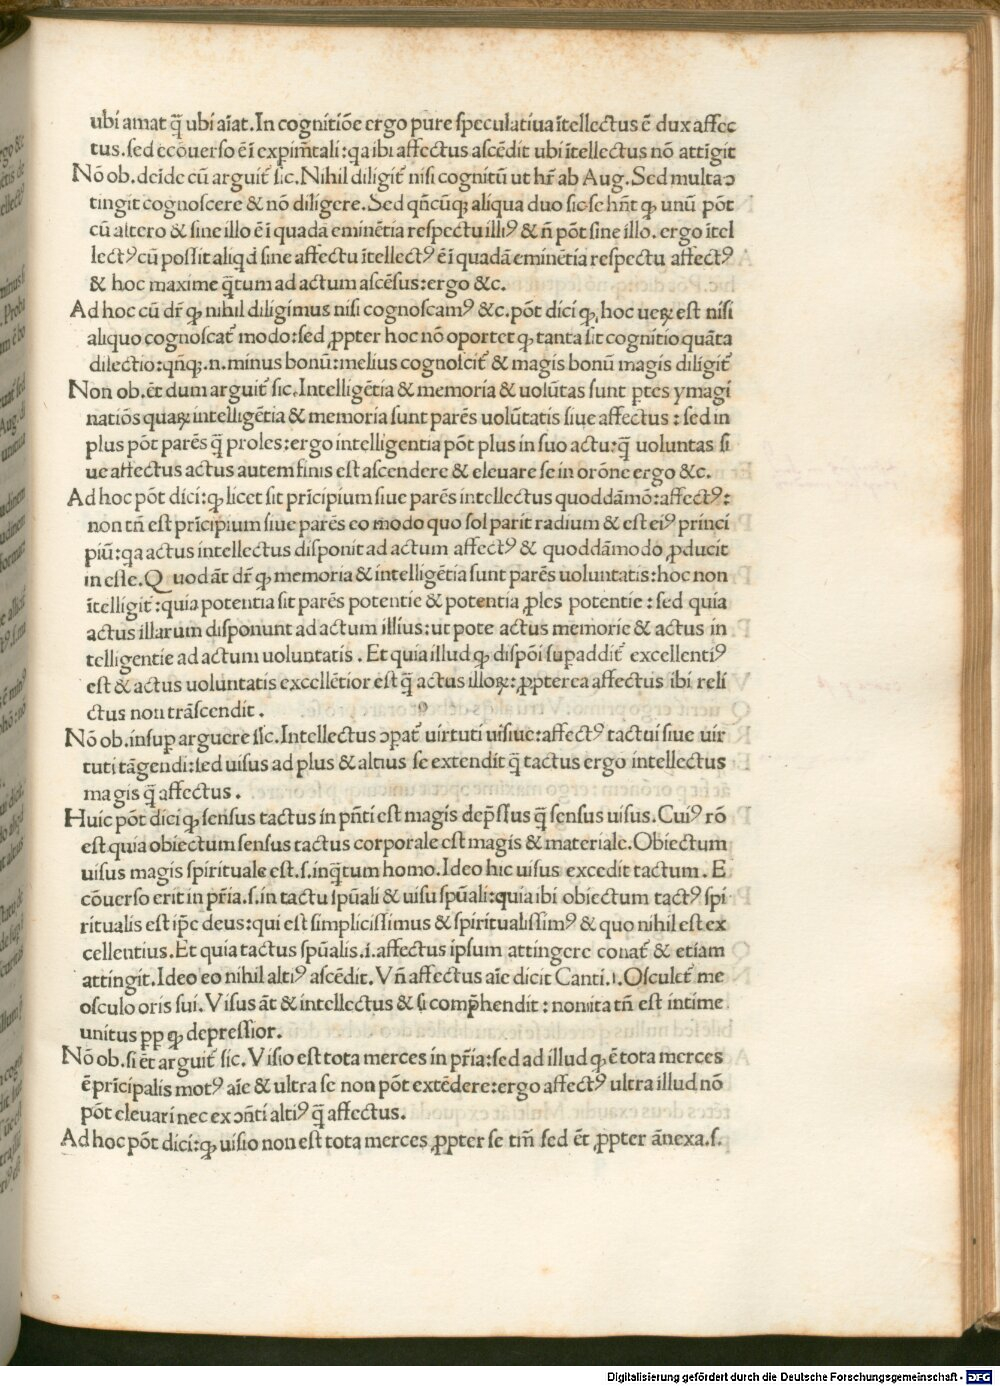 ubi amat q̄ ubi aīat. In cognitiõe ergo pure ſpeculatiua ītellectus ē dux affec
tus. ſed ecõuerſo ē ī expim̄tali: qa ibi affectus aſcēdit ubi ītellectus nõ attīgit
Nõ ob. deīde cū arguit̄ ſic. Nihil diligit̄ niſi cognitū ut hr̄ ab Aug. Sed multa ɔ
tingit cognoſcere & nõ diligere. Sed qñcūqꝫ aliqua duo ſic ſe hñt ꝙ unū põt
cū altero & ſine illo ē ī quadā eminētia reſpectu illiꝰ & ñ põt ſine illo. ergo ītel
lectꝰ cū poſſit aliqd ſine affectu ītellectꝰ ē ī quadā eminētia reſpectu affectꝰ
& hoc maxime q̄tum ad actum aſcēſus: ergo &c.
Ad hoc cū dr̄ ꝙ nihil diligimus niſi cognoſcamꝰ &c. põt dici ꝙ hoc ueꝝ eſt niſi
aliquo cognoſcat̄ modo: ſed ꝓpter hoc nõ oportet ꝙ tanta ſit cognitio quāta
dilectio: qñqꝫ. n. minus bonū: melius cognoſcit̄ & magis bonū magis diligit̄
Non ob. ēt dum arguit̄ ſic. Intelligētia & memoria & uolūtas ſunt ptes ymagi
natiõs quaꝝ intelligētia & memoria ſunt parēs uolūtatis ſiue affectus: ſed in
plus põt parēs q̄ proles: ergo intelligentia põt plus in ſuo actu: q̄ uoluntas ſi
ue affectus actus autem finis eſt aſcendere & eleuare ſe in orõne ergo &c.
Ad hoc põt dici: ꝙ licet ſit prīcipium ſiue parēs intellectus quoddāmõ: affectꝰ:
non tñ eſt prīcipium ſiue parēs eo modo quo ſol parit radium & eſt eiꝰ princi
piū: qa actus intellectus diſponit ad actum affectꝰ & quoddāmodo ꝓducit
in eſſe. Q uod āt dr̄ ꝙ memoria & intelligētia ſunt parēs uoluntatis: hoc non
ītelligit̄: quia potentia ſit parēs potentie & potentia ꝓles potentie: ſed quia
actus illarum diſponunt ad actum illius: ut pote actus memorie & actus in
telligentie ad actum uoluntatis. Et quia illud ꝙ diſpõi ſupaddit̄ excellentiꝰ
eſt & actus uoluntatis excellētior eſt q̄ actus illoꝝ: ꝓpterea affectus ibi reli
ctus non trāſcendit.
Nõ ob. inſup arguere ſic. Intellectus ɔpat̄ uirtuti uiſiue: affectꝰ tactui ſiue uir
tuti tāgendi: ſed uiſus ad plus & altius ſe extendit q̄ tactus ergo intellectus
magis q̄ affectus.
Huic põt dici ꝙ ſenſus tactus in pñti eſt magis dep̄ſſus q̄ ſenſus uiſus. Cuiꝰ rõ
eſt quia obiectum ſenſus tactus corporale eſt magis & materiale. Obiectum
uiſus magis ſpirituale eſt. ſ. inq̄tum homo. Ideo hic uiſus excedit tactum. E
cõuerſo erit in pr̄ia. ſ. in tactu ſpūali & uiſu ſpūali: quia ibi obiectum tactꝰ ſpi
ritualis eſt ip̄e deus: qui eſt ſimpliciſſimus & ſpiritualiſſimꝰ & quo nihil eſt ex
cellentius. Et quia tactus ſpūalis .i. affectus ipſum attingere conat̄ & etiam
attingit. Ideo eo nihil altiꝰ aſcēdit. Vñ affectus aīe dicit Canti. 1. Oſculet̄ me
oſculo oris ſui. Viſus āt & intellectus & ſi comp̄hendit: non ita tñ eſt intime
unitus pp ꝙ depreſſior.
Nõ ob. ſi ēt arguit̄ ſic. Viſio eſt tota merces in pr̄ia: ſed ad illud ꝙ ē tota merces
ē prīcipalis motꝰ aīe & ultra ſe non põt extēdere: ergo affectꝰ ultra illud nõ
põt eleuari nec ex ɔñti altiꝰ q̄ affectus.
Ad hoc põt dici: ꝙ uiſio non eſt tota merces ꝓpter ſe tm̄ ſed ēt ꝓpter ānexa. ſ.
Digitalisierung gefördert durch die Deutsche Forschungsgemeinschaft - DFG